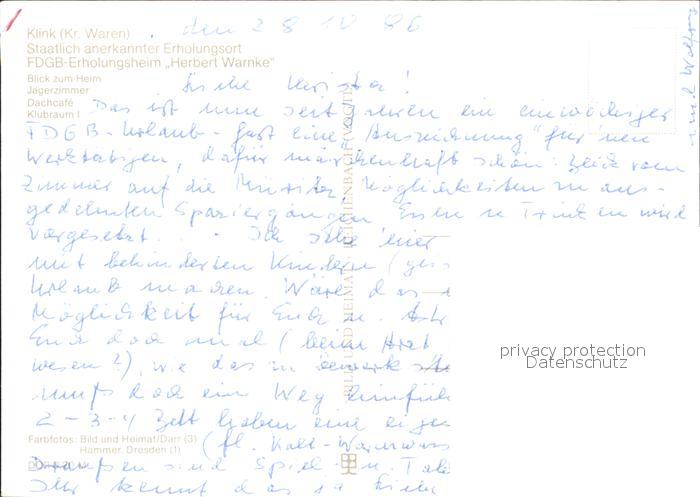 Klink (Kr. Waren)
den 28 10 86
Staatlich anerkannter Erholungsort
FDGB-Erholungsheim „Herbert Warnke"
Blick zum Heim
Jägerzimmer
Dachcafé
Klubraum I
Liebe Christa!
Das ist nun seit Jahren ein einwöchiger
FDGB-Urlaub - fast eine „Auszeichnung" für 'nen
Werktätigen, dafür märchenhaft schön: Blick vom
Zimmer auf die Müritz, Möglichkeiten zu aus-
gedehnten Spaziergängen Essen u Trinken wird
vorgesetzt. . . - Ich sehe hier
mit behinderten Kindern
Urlaub machen. Wäre das
Möglichkeit für Euch
Euch doch mal (beim Arzt
wesen?), wie das zu
muß doch ein Weg
2-3-4 Zelt haben eine
(fl. Kalt-Warmwass
Draußen sind Spiel u. T
Ihr kennt das ja
und Wolfgang
BILD UND HEIMAT REICHENBACH (VOGTL)
Farbfotos: Bild und Heimat/Darr (3)
Hammer, Dresden (1)
privacy protection
Datenschutz